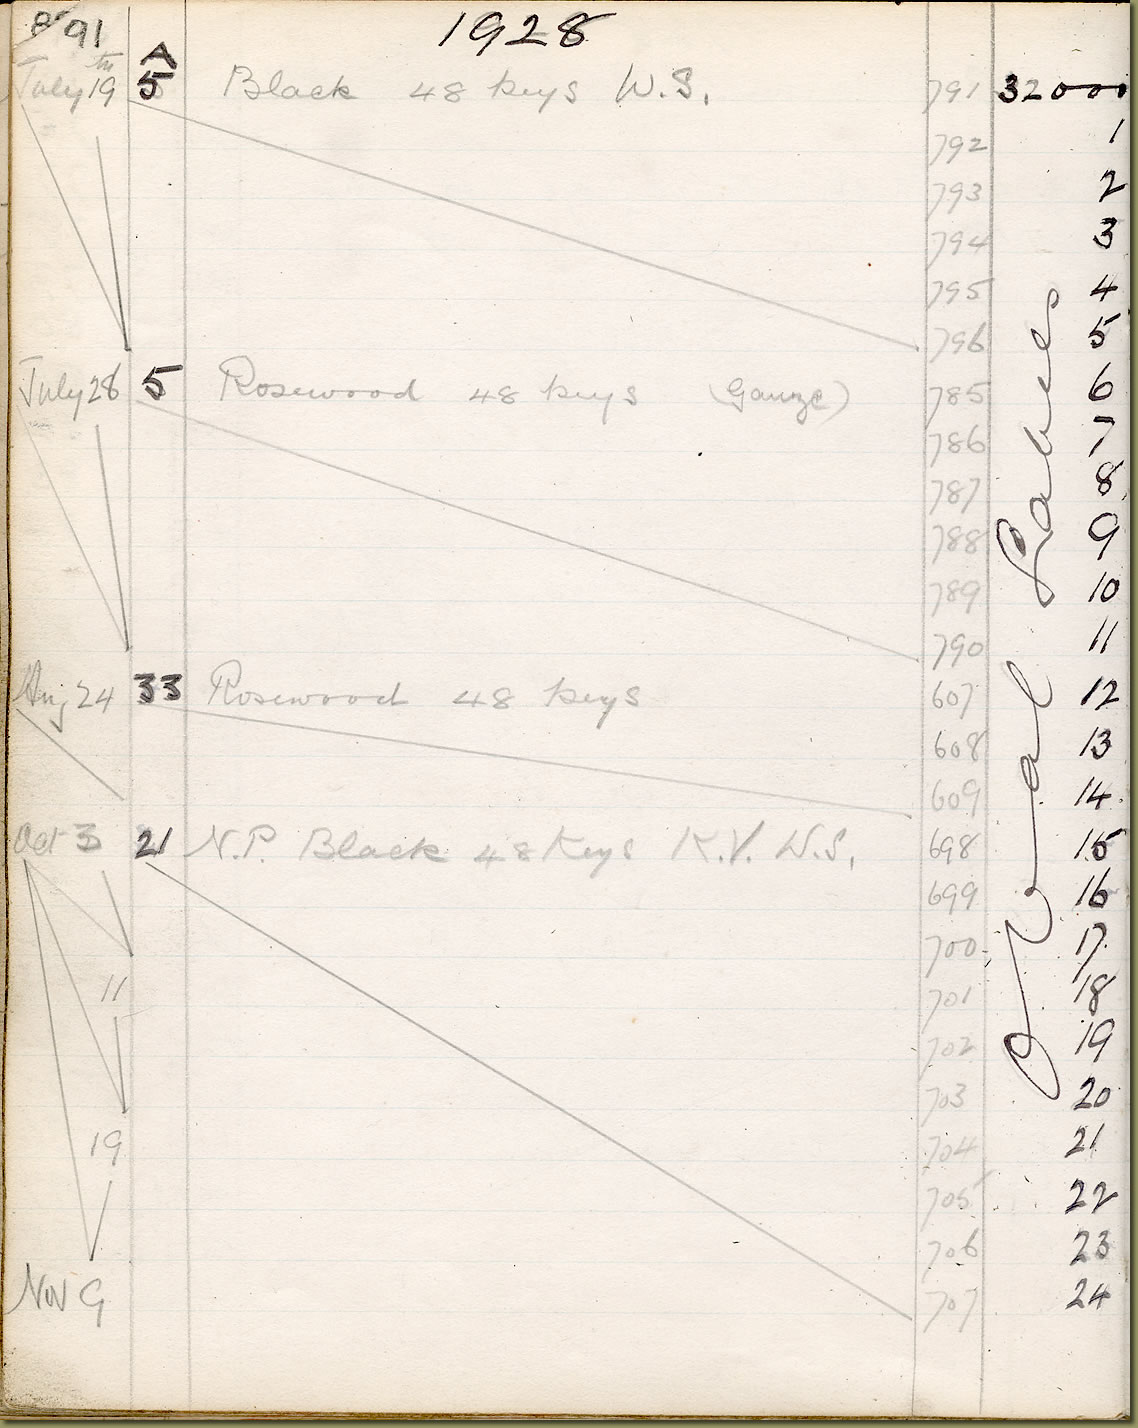 B 91 1928
A
July 19th 5 Black 48 keys W.S. 791 32000
792 1
793 2
794 3
795 4
796 5
July 28 5 Rosewood 48 keys (Gauze) 785 6
786 7
787 8
788 9
789 10
790 11
Aug 24 33 Rosewood 48 keys 607 12
608 13
609 14
Oct 3 21 N.P. Black 48 Keys K.V. W.S. 698 15
699 16
700 17
11 701 18
702 19
703 20
19 704 21
705 22
706 23
Nov 9 707 24
Oval Labels